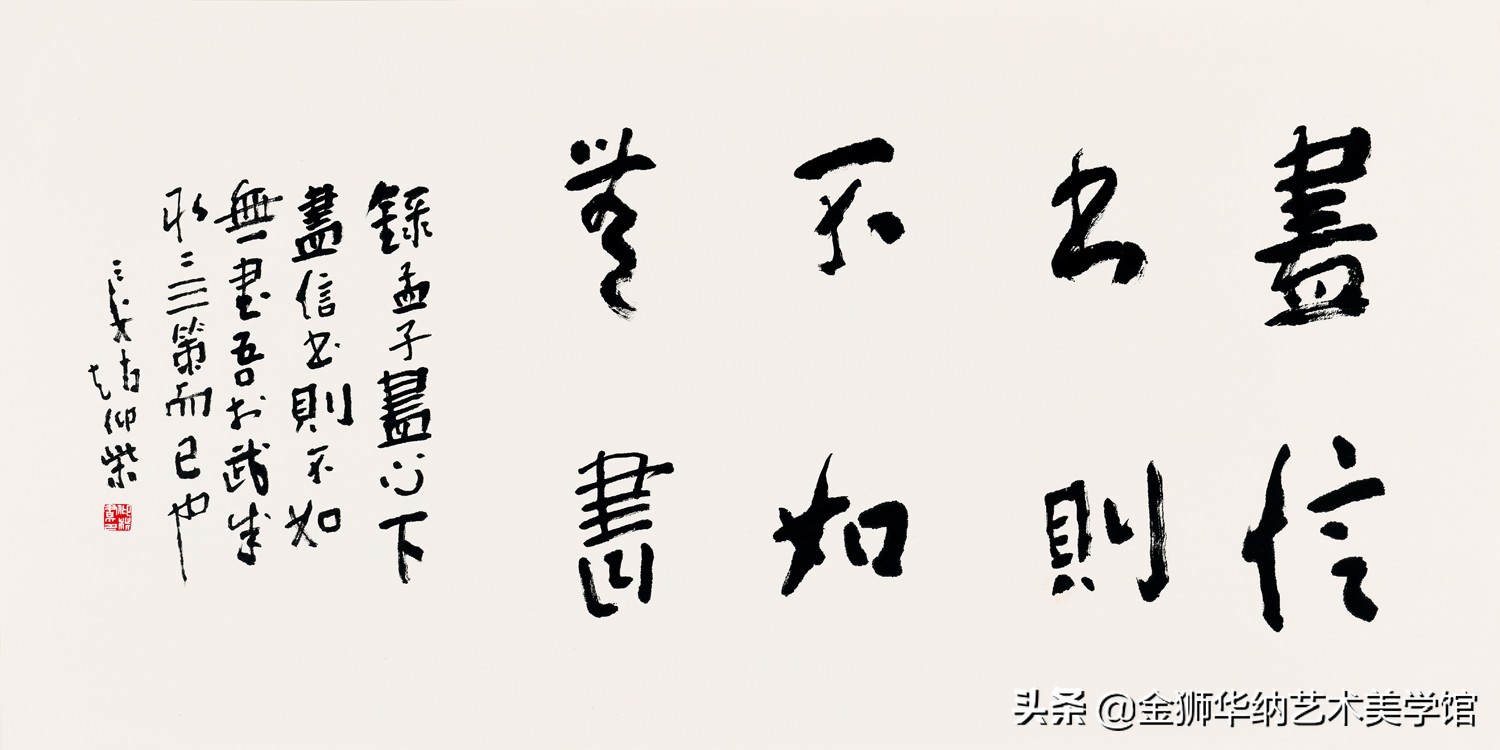 盡信
书則
不如
無書
錄孟子盡心下
盡信书則不如
無書吾於武成
取二三策而已也
仰柴
头条 @金狮华纳艺术美学馆